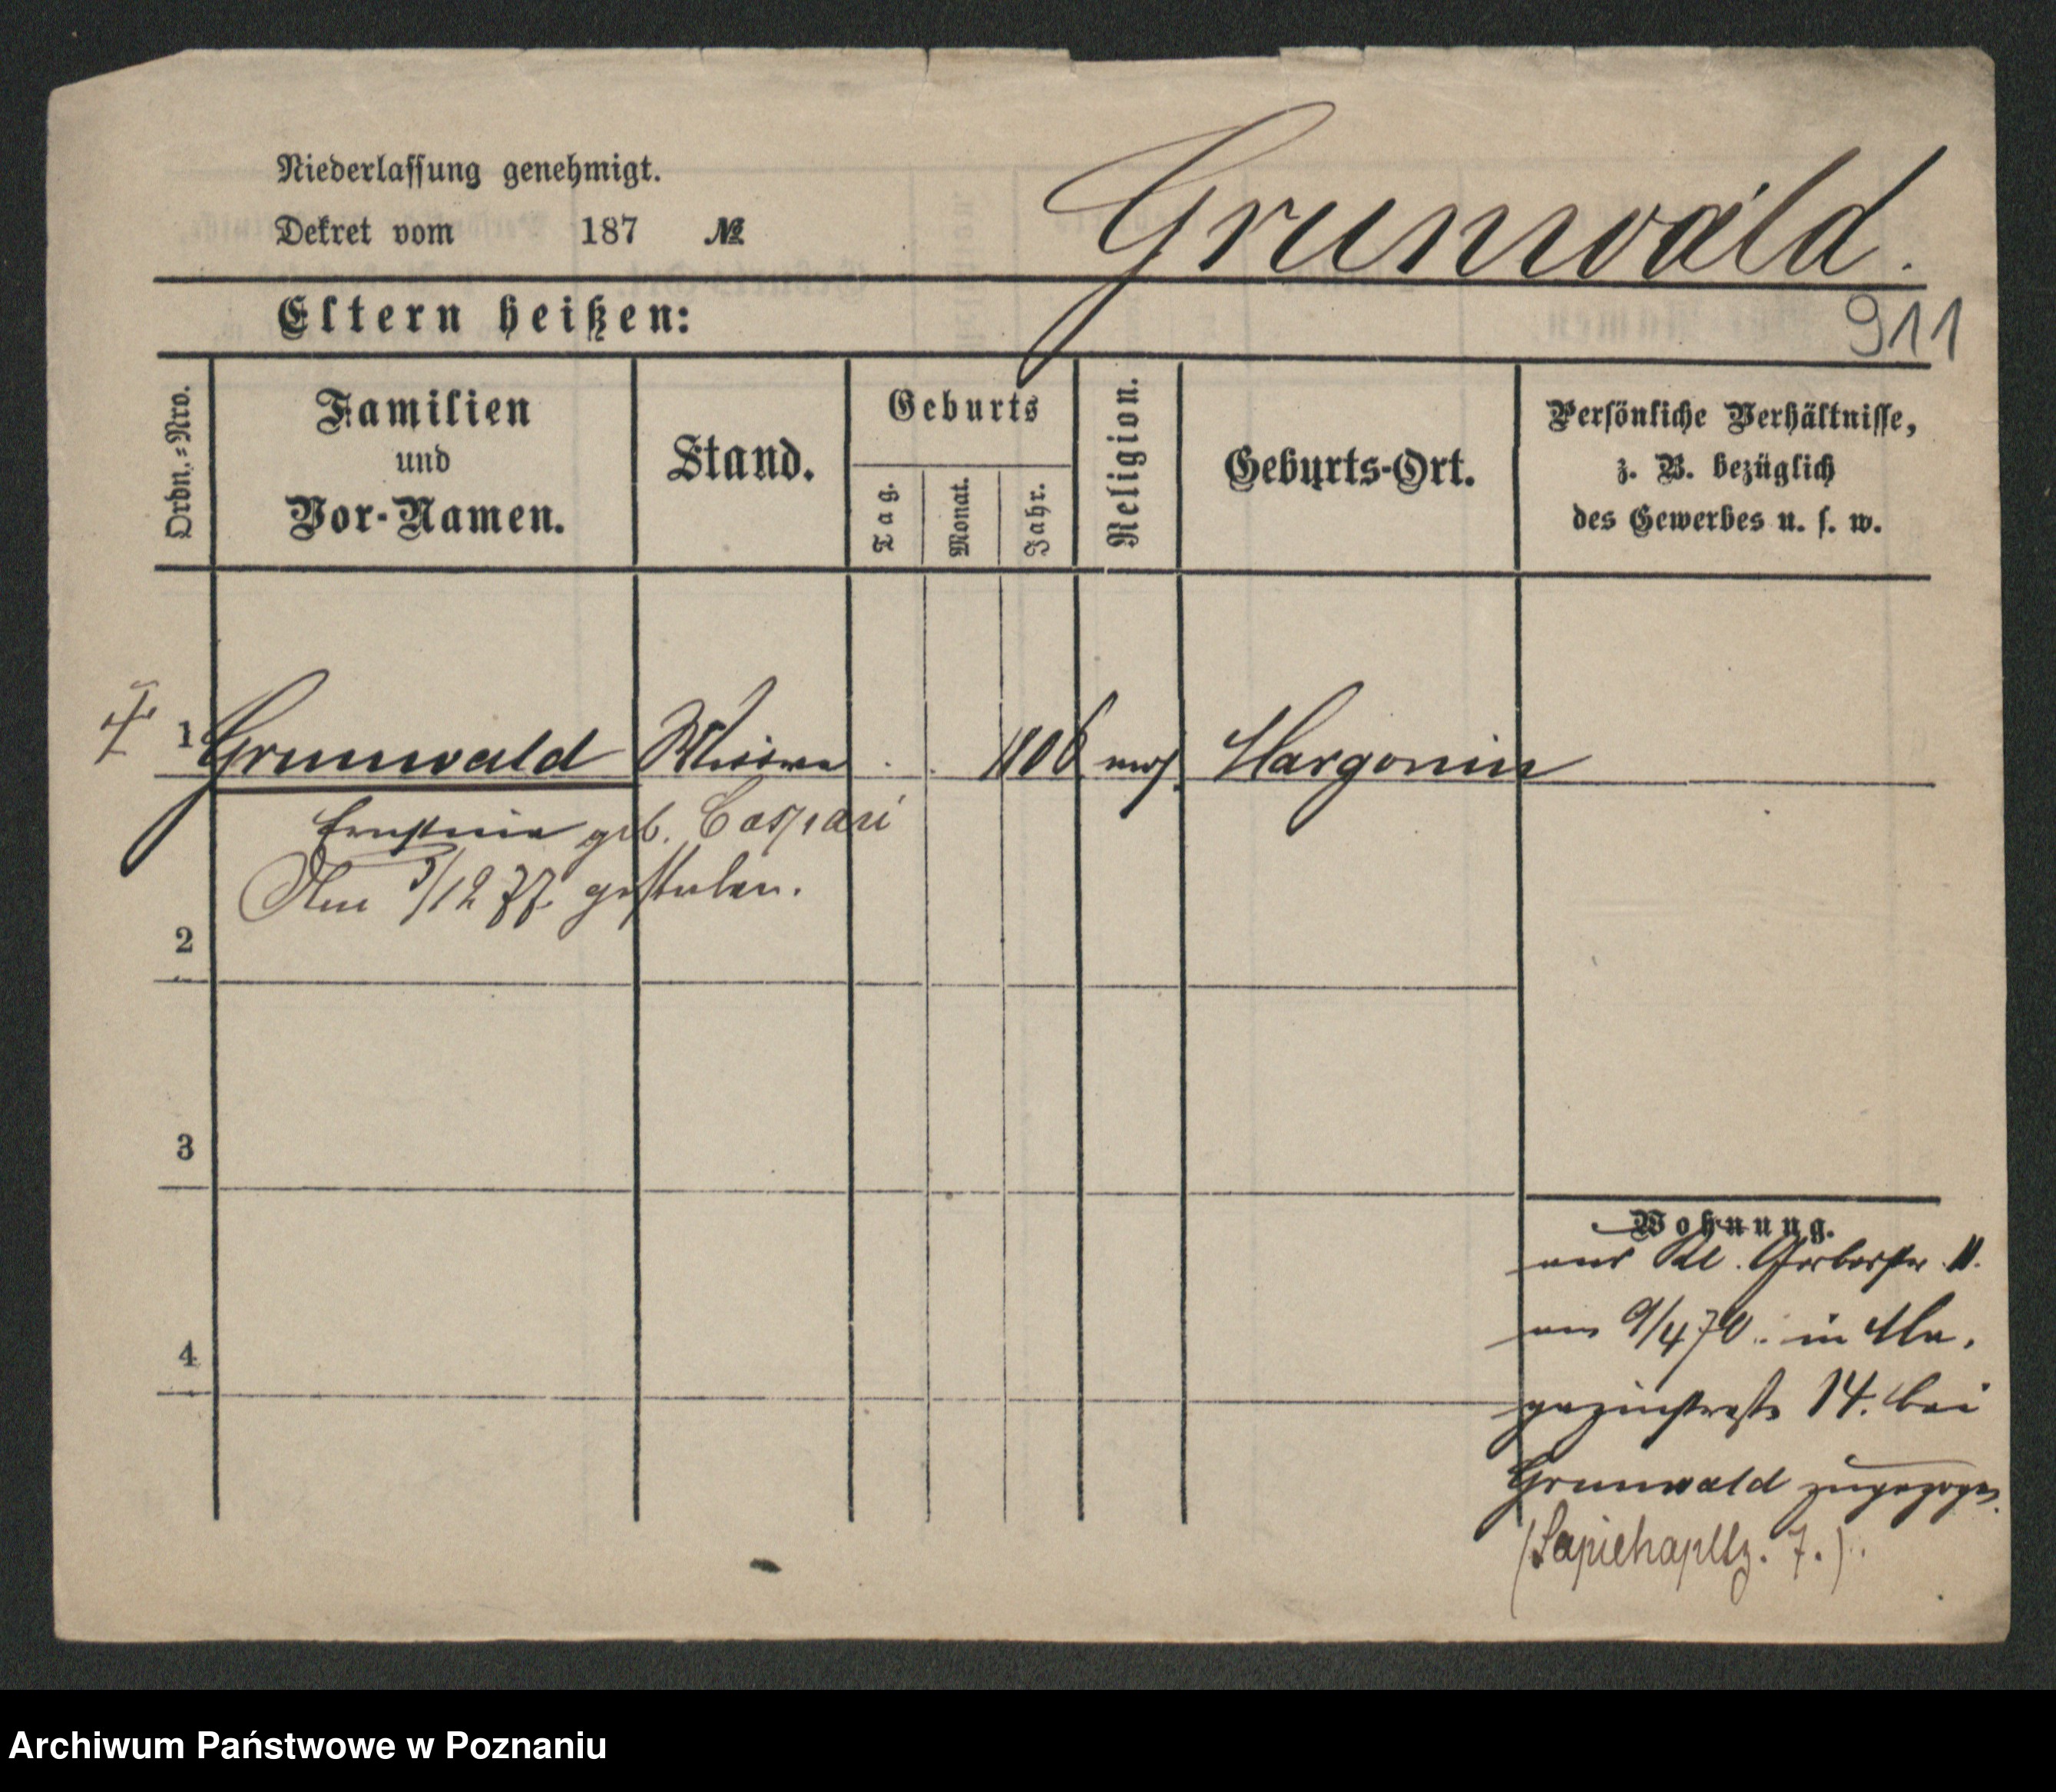 Niederlassung genehmigt.
Dekret vom 187 №
Grunwald.
911
Eltern heißen:
Ordn.-Nro.
Familien
und
Vor-Namen.
Stand.
Geburts
Tag.
Monat.
Jahr.
Religion.
Geburts-Ort.
Persönliche Verhältnisse,
z. B. bezüglich
des Gewerbes u. s. w.
1 Grunwald Wittwe 1806 mos. Margonin
geb. Caspari
Am 5/12 77 gestorben.
2
3
4
Wohnung.
aus Kl. Gerberstr. 11.
am 9/4 70. in Ma,
gazinstraße 14. bei
Grunwald zugezogen.
(Sapiehapltz. 7.)
Archiwum Państwowe w Poznaniu